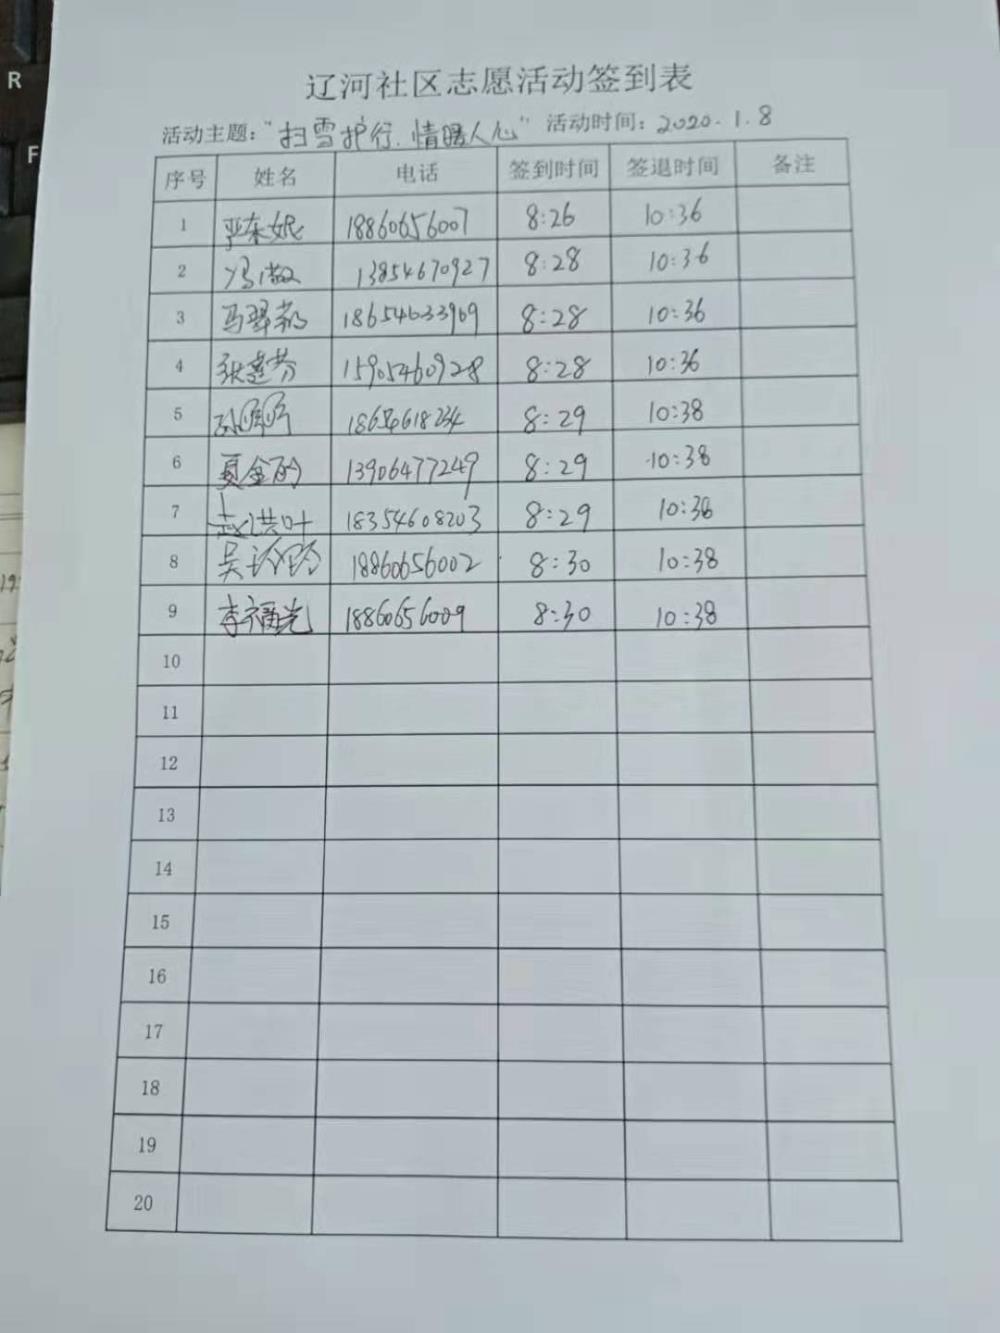 辽河社区志愿活动签到表
活动主题：“扫雪护行.情暖人心” 活动时间：2020.1.8
序号 姓名 电话 签到时间 签退时间 备注
1 18860656007 8:26 10:36
2 冯敏 13854670927 8:28 10:36
3 马翠 18654633969 8:28 10:36
4 张建芬 15905460928 8:28 10:36
5 18654618234 8:29 10:38
6 夏金 13906477249 8:29 10:38
7 赵洪叶 18354608203 8:29 10:38
8 吴 18860656002 8:30 10:38
9 李福光 18860656009 8:30 10:38
10
11
12
13
14
15
16
17
18
19
20
R
F